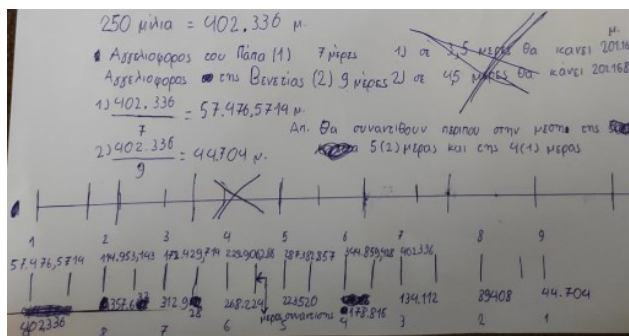 250 μίλια = 402.336 μ.
Αγγελιοφορος του Πάπα (1) 7 μέρες 1) σε 3,5 μερες θα κανει 201.168 μ.
Αγγελιοφορος της Βενετίας (2) 9 μέρες 2) σε 4,5 μερες θα κάνει 201.168
1) 402.336 / 7 = 57.476,5714 μ.
Απ. Θα συναντιθουν περιπου στην μεση της
2) 402.336 / 9 = 44.704 μ.
5 (2) μέρας και της 4 (1) μερας
1 2 3 4 5 6 7 8 9
57.476,5714 114.953,143 172.429,714 229.906,286 287.382,857 344.859,428 402336
402336 357.6 312.9 268.224 223520 178.816 134.112 89408 44.704
μερα συναντησης
8 7 6 5 4 3 2 1